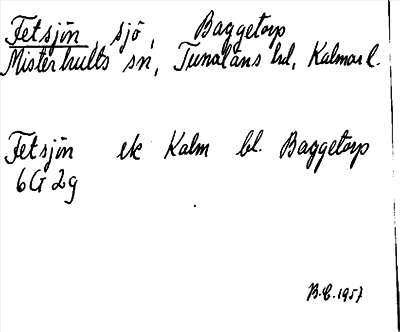 Fetsjön, sjö, Baggetorp
Misterhults sn, Tunaläns hd, Kalmar l.
Fetsjön ek Kalm bl. Baggetorp
6G 2g
B.E. 1957